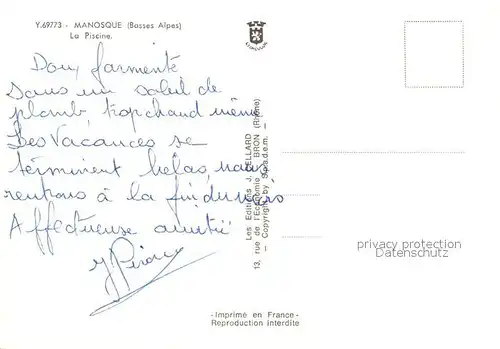 Y.69773 - MANOSQUE (Basses Alpes)
La Piscine.
Doux farmenté
Sous un soleil de
plomb trop chaud même
Les Vacances se
terminent helas, nous
rentrons à la fin du mois
Affectueuse amitié
Les Editions J. CELLARD
13, rue de l'Economie - BRON (Rhône)
- Copyright by S.p.a.d.e.m. -
- Imprimé en France -
Reproduction interdite
privacy protection
Datenschutz